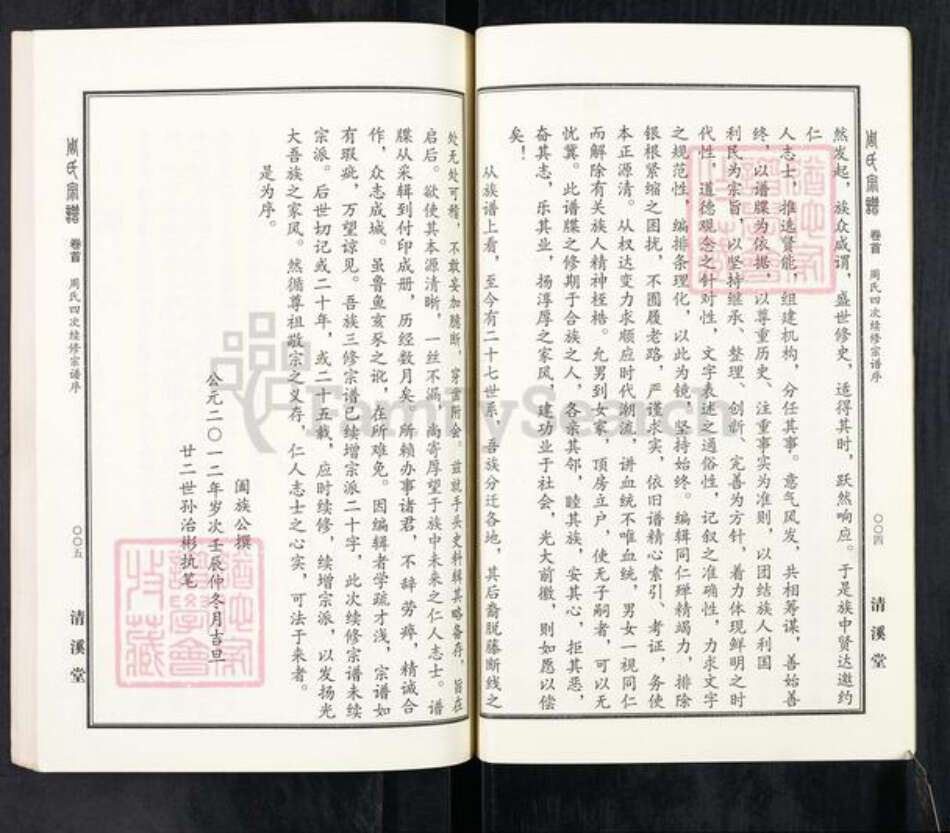 周氏宗谱
卷首
周氏四次续修宗谱序
〇〇四
清溪堂
然发起，族众咸谓，盛世修史，适得其时，跃然响应。于是族中贤达邀约
仁
人志士，推选贤能，组建机构，分任其事。意气风发，共相筹谋，善始善
终，以谱牒为依据，以尊重历史、注重事实为准则，以团结族人利国
利民为宗旨，以坚持继承、整理、创新、完善为方针，着力体现鲜明之时
代性，道德观念之针对性，文字表述之通俗性，记叙之准确性，力求文字
之规范性，编排条理化，以此为镜，坚持始终。编辑同仁殚精竭力，排除
银根紧缩之困扰，不囿履老路，严谨求实，依旧谱精心索引、考证，务使
本正源清。从权达变力求顺应时代潮流，讲血统不唯血统，男女一视同仁
而解除有关族人精神桎梏。允男到女家，顶房立户，使无子嗣者，可以无
忧冀。此谱牒之修期于合族之人，各亲其邻，睦其族，安其心，拒其恶，
奋其志，乐其业，扬淳厚之家风，建功业于社会，光大前徽，则如愿以偿
矣！
从族谱上看，至今有二十七世系，吾族分迁各地，其后裔脱藤断线之
处无处可稽，不敢妄加臆断，穿凿附会。兹就手头史料辑其略备存，旨在
启后。欲使其本源清晰，一丝不漏，尚寄厚望于族中未来之仁人志士。谱
牒从采辑到付印成册，历经数月矣，所赖办事诸君，不辞劳瘁，精诚合
作，众志成城。虽鲁鱼亥豕之讹，在所难免。因编辑者学疏才浅，宗谱如
有瑕疵，万望谅见。吾族三修宗谱已续增宗派二十字，此次续修宗谱未续
宗派。后世切记或二十年，或二十五载，应时续修，续增宗派，以发扬光
大吾族之家风。然循尊祖敬宗之义存，仁人志士之心实，可法于来者。
是为序。
阖族公撰
公元二〇一二年岁次壬辰仲冬月吉旦
廿二世孙治彬执笔
周氏宗谱
卷首
周氏四次续修宗谱序
〇〇五
清溪堂
FamilySearch